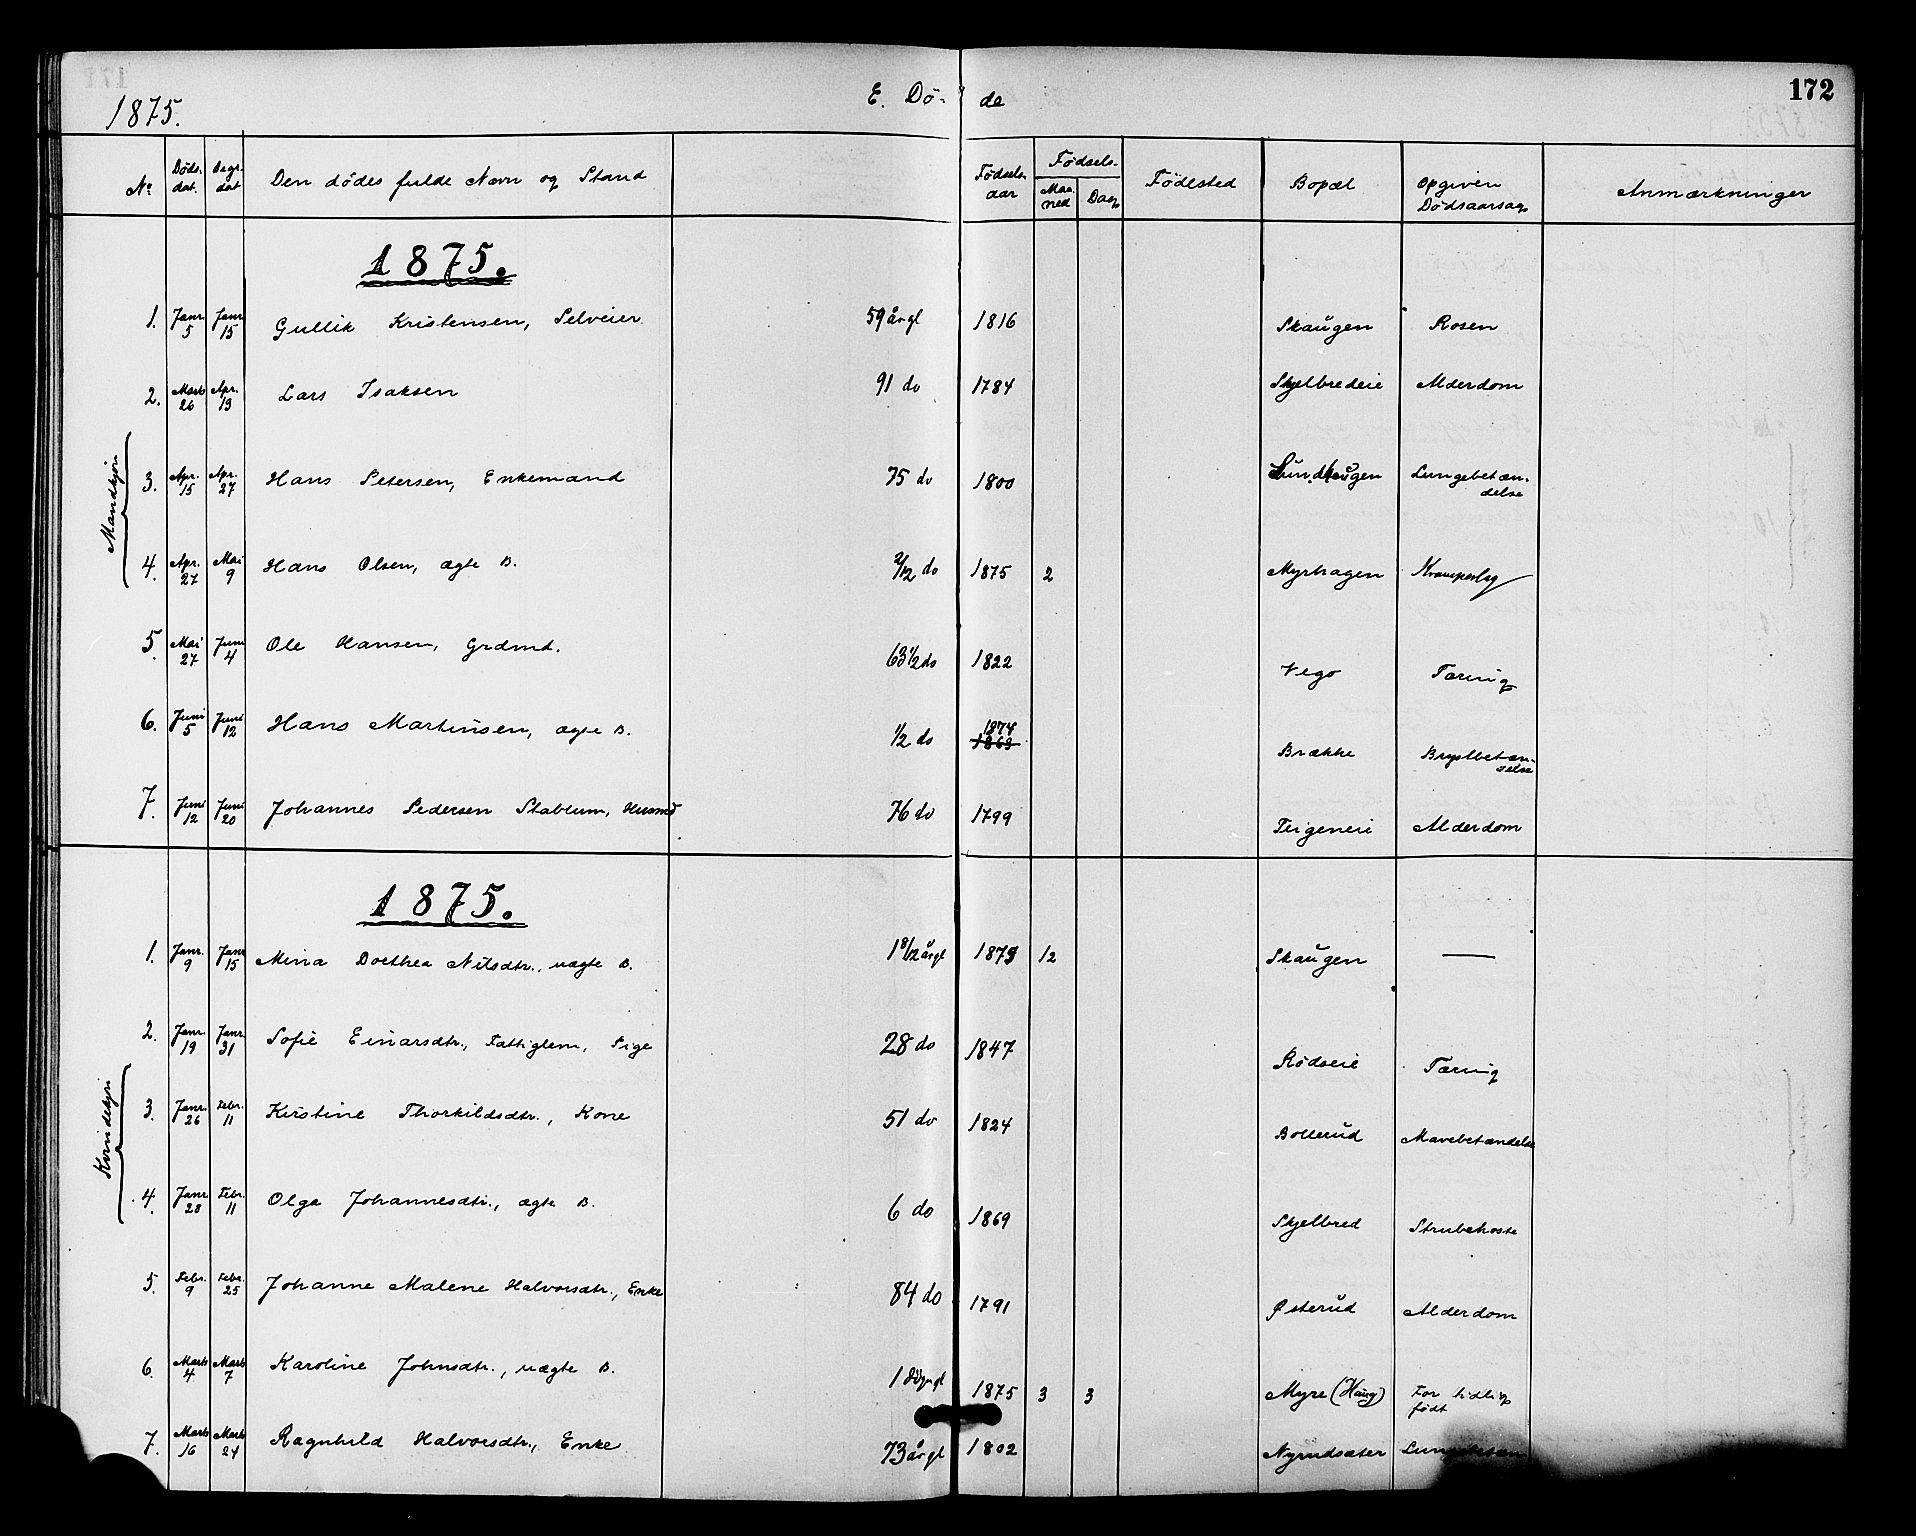 172
1875. E. Dö- de
No Døds. dat. Begr. dat Den dödes fulde Navn og Stand Födsels aar Födsels- Maaned Dag Födested Bopæl Opgiven Dödsaarsag Anmærkninger
1875.
Mandkjön
1. Janr. 5 Janr. 15 Gullik Kristensen, Selveier 59 årgl 1816 Skaugen Rosen
2. Marts 26 Apr. 13 Lars Isaksen 91 do 1784 Skjelbredeie Alderdom
3. Apr. 15 Apr. 27 Hans Petersen, Enkemand 75 do 1800 Sundhaugen Lungebetæn-
delse
4. Apr. 27 Mai 9 Hans Olsen, ægte B. 2/12 do 1875 2 Myrhagen Krampeslag
5. Mai 27 Juni 4 Ole Hansen, Grdmd. 63 1/2 do 1822 Vego Tæring
6. Juni 5 Juni 12 Hans Martinsen, ægte B. 1/2 do 1874 1869 Brække Brystbetæn-
delse
7. Juni 12 Juni 20 Johannes Pedersen Stablum, Husmd 76 do 1799 Teigeneie Alderdom
1875.
Kvindekjön
1. Janr. 9 Janr. 15 Mina Dorthea Nilsdtr., uægte B. 1 8/12 årgl 1873 12 Skaugen —
2. Janr. 19 Janr. 31 Sofie Einarsdtr., Fattiglem, Pige 28 do 1847 Rödseie Tæring
3. Janr. 26 Febr. 11 Kirstine Thorkildsdtr., Kone 51 do 1824 Bollerud Mavebetændelse
4. Janr. 28 Febr. 11 Olga Johannesdtr., ægte B. 6 do 1869 Skjelbred Strubehoste
5. Febr. 9 Febr. 25 Johanne Malene Halvorsdtr., Enke 84 do 1791 Østerud Alderdom
6. Marts 4 Marts 7 Karoline Johnsdtr., uægte B. 1 Dögngl 1875 3 3 Myre (Haug) For tidlig
födt
7. Marts 16 Marts 24 Ragnhild Halvorsdtr., Enke 73 årgl 1802 Nyrudsæter Lungebetæn